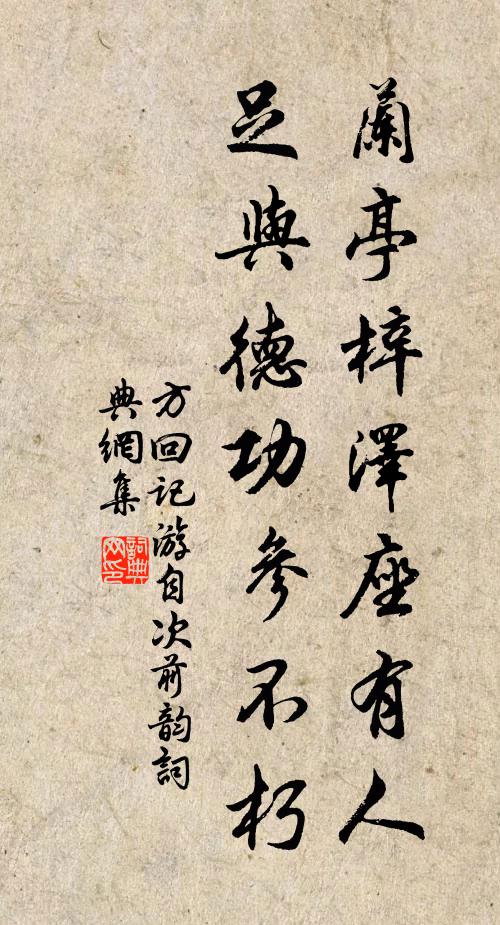 蘭亭梓澤座有人
足與德功參不朽
方回記游自次前韵詞
典網集
詞典网印